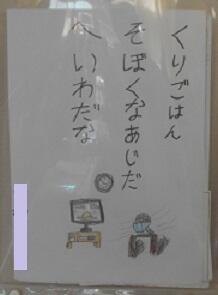 くりごはん
そぼくなあじだ
へいわだな